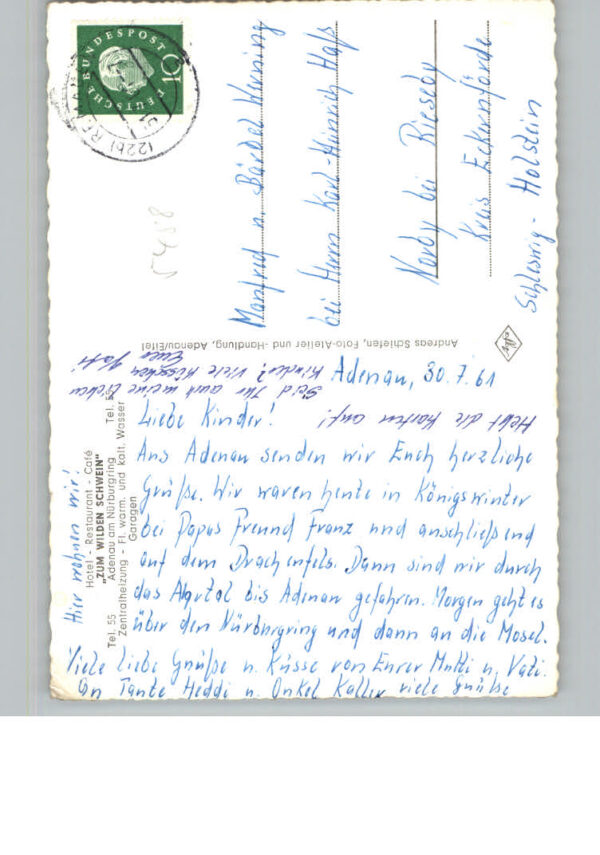 DEUTSCHE BUNDESPOST
10
(22b)
5458
Manfred u. Bärbel Henning
bei Herrn Karl-Heinrich Haß
Norby bei Rieseby
Kreis Eckernförde
Schleswig-Holstein
Andreas Schiefen, Foto-Atelier und -Handlung, Adenau/Eifel
Hier wohnen wir!
Hotel - Restaurant - Café
"ZUM WILDEN SCHWEIN"
Tel. 55 Adenau am Nürburgring Tel. 55
Zentralheizung - Fl. warm. und kalt. Wasser
Garagen
Adenau, 30.7.61
Liebe Kinder!
Aus Adenau senden wir Euch herzliche
Grüße. Wir waren heute in Königswinter
bei Papas Freund Franz und anschließend
auf dem Drachenfels. Dann sind wir durch
das Ahrtal bis Adenau gefahren. Morgen geht es
über den Nürburgring und dann an die Mosel.
Viele liebe Grüße u. Küsse von Eurer Mutti u. Vati.
An Tante Heddi u. Onkel Kaller viele Grüße
Hebt die Karten auf!
Seid Ihr auch meine lieben
Kinder? Viele Küsschen
Euer Vati